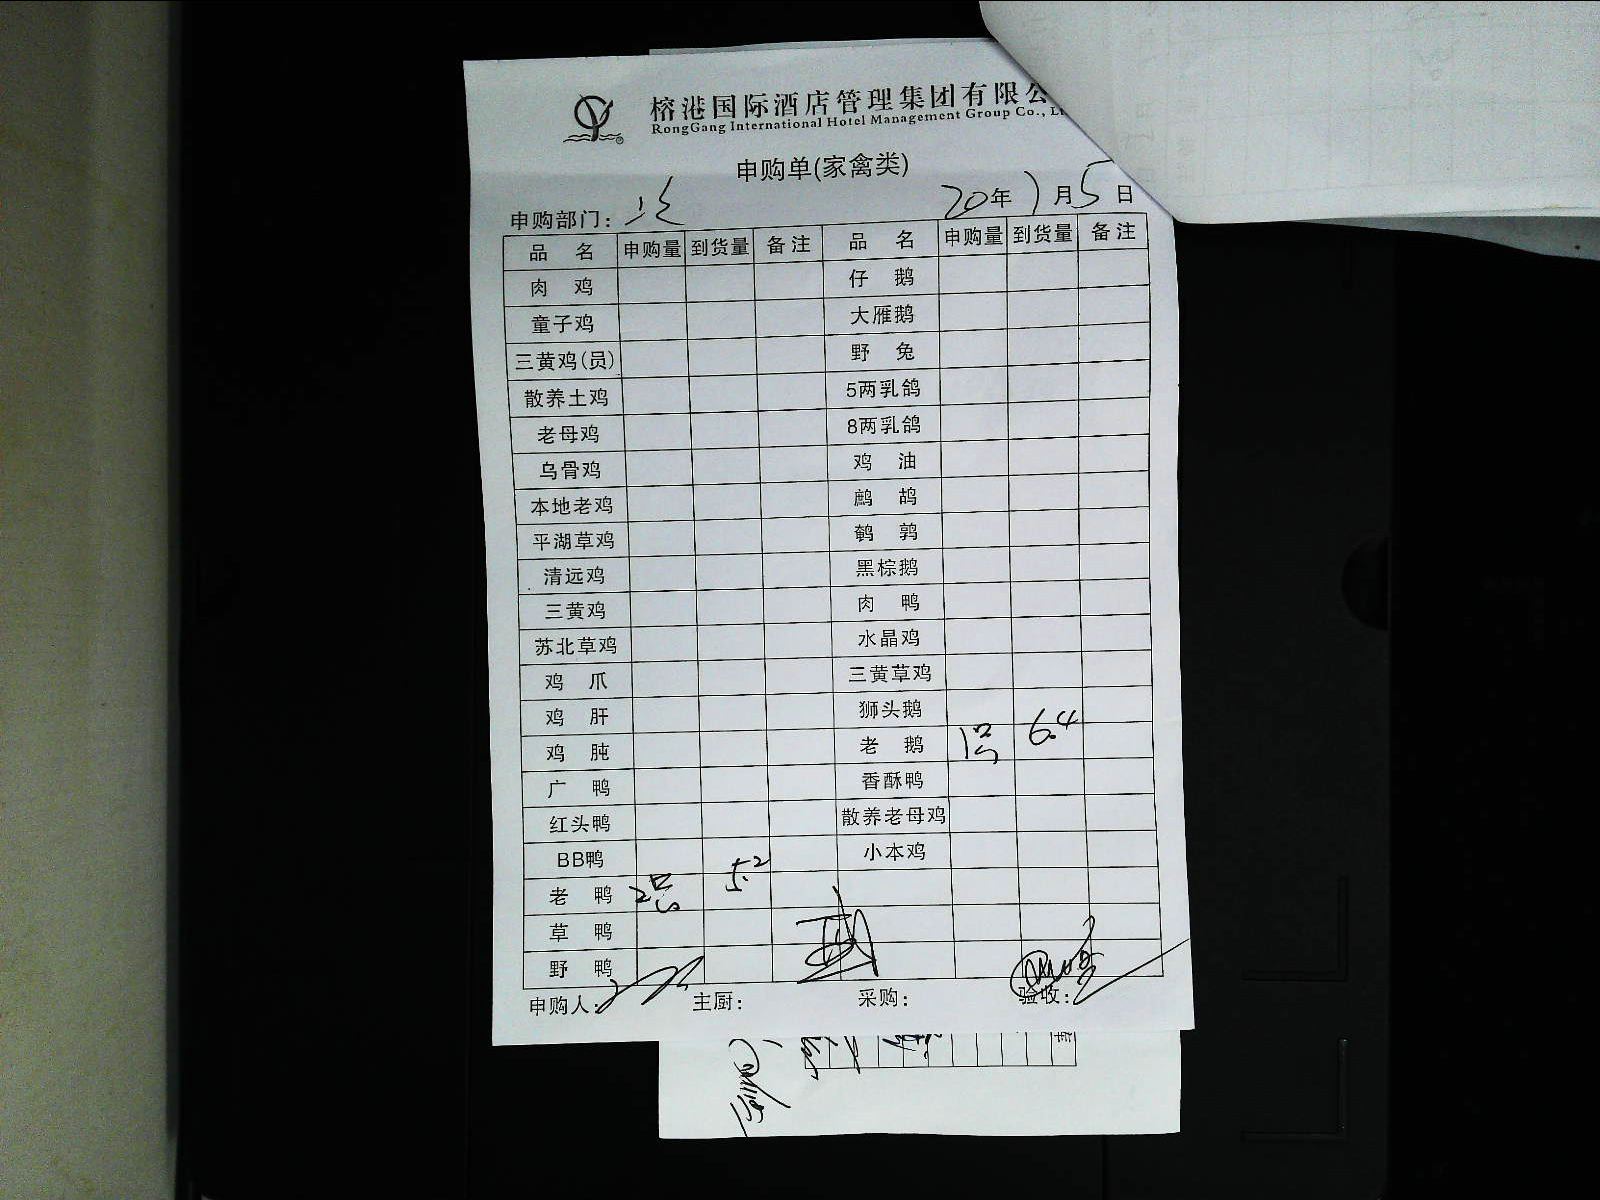 榕港国际酒店管理集团有限公
RongGang International Hotel Management Group Co., Lt
申购单(家禽类)
申购部门: 20年7月5日
品名 申购量 到货量 备注 品名 申购量 到货量 备注
肉鸡 仔鹅
童子鸡 大雁鹅
三黄鸡(员) 野兔
散养土鸡 5两乳鸽
老母鸡 8两乳鸽
乌骨鸡 鸡油
本地老鸡 鹧鸪
平湖草鸡 鹌鹑
清远鸡 黑棕鹅
三黄鸡 肉鸭
苏北草鸡 水晶鸡
鸡爪 三黄草鸡
鸡肝 狮头鹅
鸡肫 老鹅 1只 6.4
广鸭 香酥鸭
红头鸭 散养老母鸡
BB鸭 小本鸡
老鸭 2只 5.2
草鸭
野鸭
申购人: 主厨: 采购: 验收: